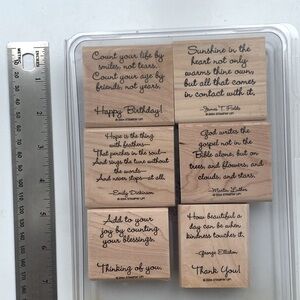 Count your life by
smiles, not tears.
Count your age by
friends, not years.
Happy Birthday!
© 2004 STAMPIN' UP!
Sunshine in the
heart not only
warms thine own,
but all that comes
in contact with it.
-James T. Fields
© 2004 STAMPIN' UP!
Hope is the thing
with feathers—
That perches in the soul—
And sings the tune without
the words—
And never stops—at all.
-Emily Dickinson
© 2004 STAMPIN' UP!
God writes the
gospel not in the
Bible alone, but on
trees, and flowers, and
clouds, and stars.
-Martin Luther
© 2004 STAMPIN' UP!
Add to your
joy by counting
your blessings.
Thinking of you.
© 2004 STAMPIN' UP!
How beautiful a
day can be when
kindness touches it.
-George Elliston
Thank You!
© 2004 STAMPIN' UP!